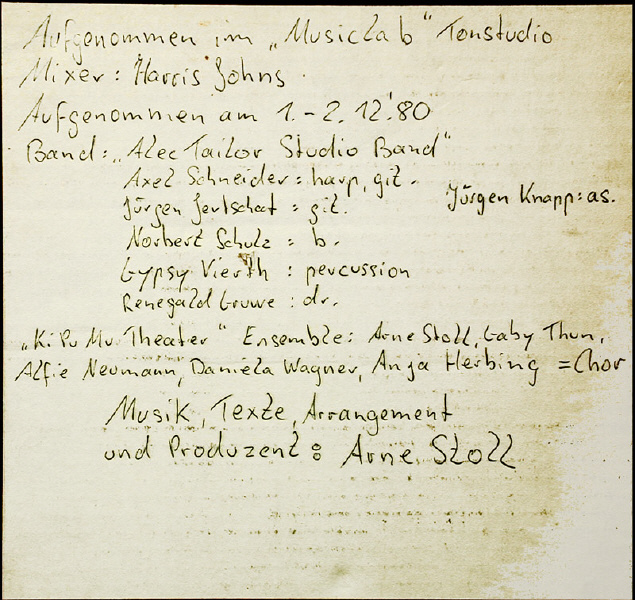 Aufgenommen im „Musiclab" Tonstudio
Mixer: Harris Johns
Aufgenommen am 1.-2. 12.'80
Band: „Alec Tailor Studio Band"
Axel Schneider: harp, git.
Jürgen Jertschat: git.
Jürgen Knapp: as.
Norbert Schulz: b.
Gypsy Vierth: percussion
Renegald Gruwe: dr.
„Ki Pu Mu Theater" Ensemble: Arne Stoll, Gaby Thun,
Alfie Neumann, Daniela Wagner, Anja Herbing = Chor
Musik, Texte, Arrangement
und Produzent: Arne Stoll